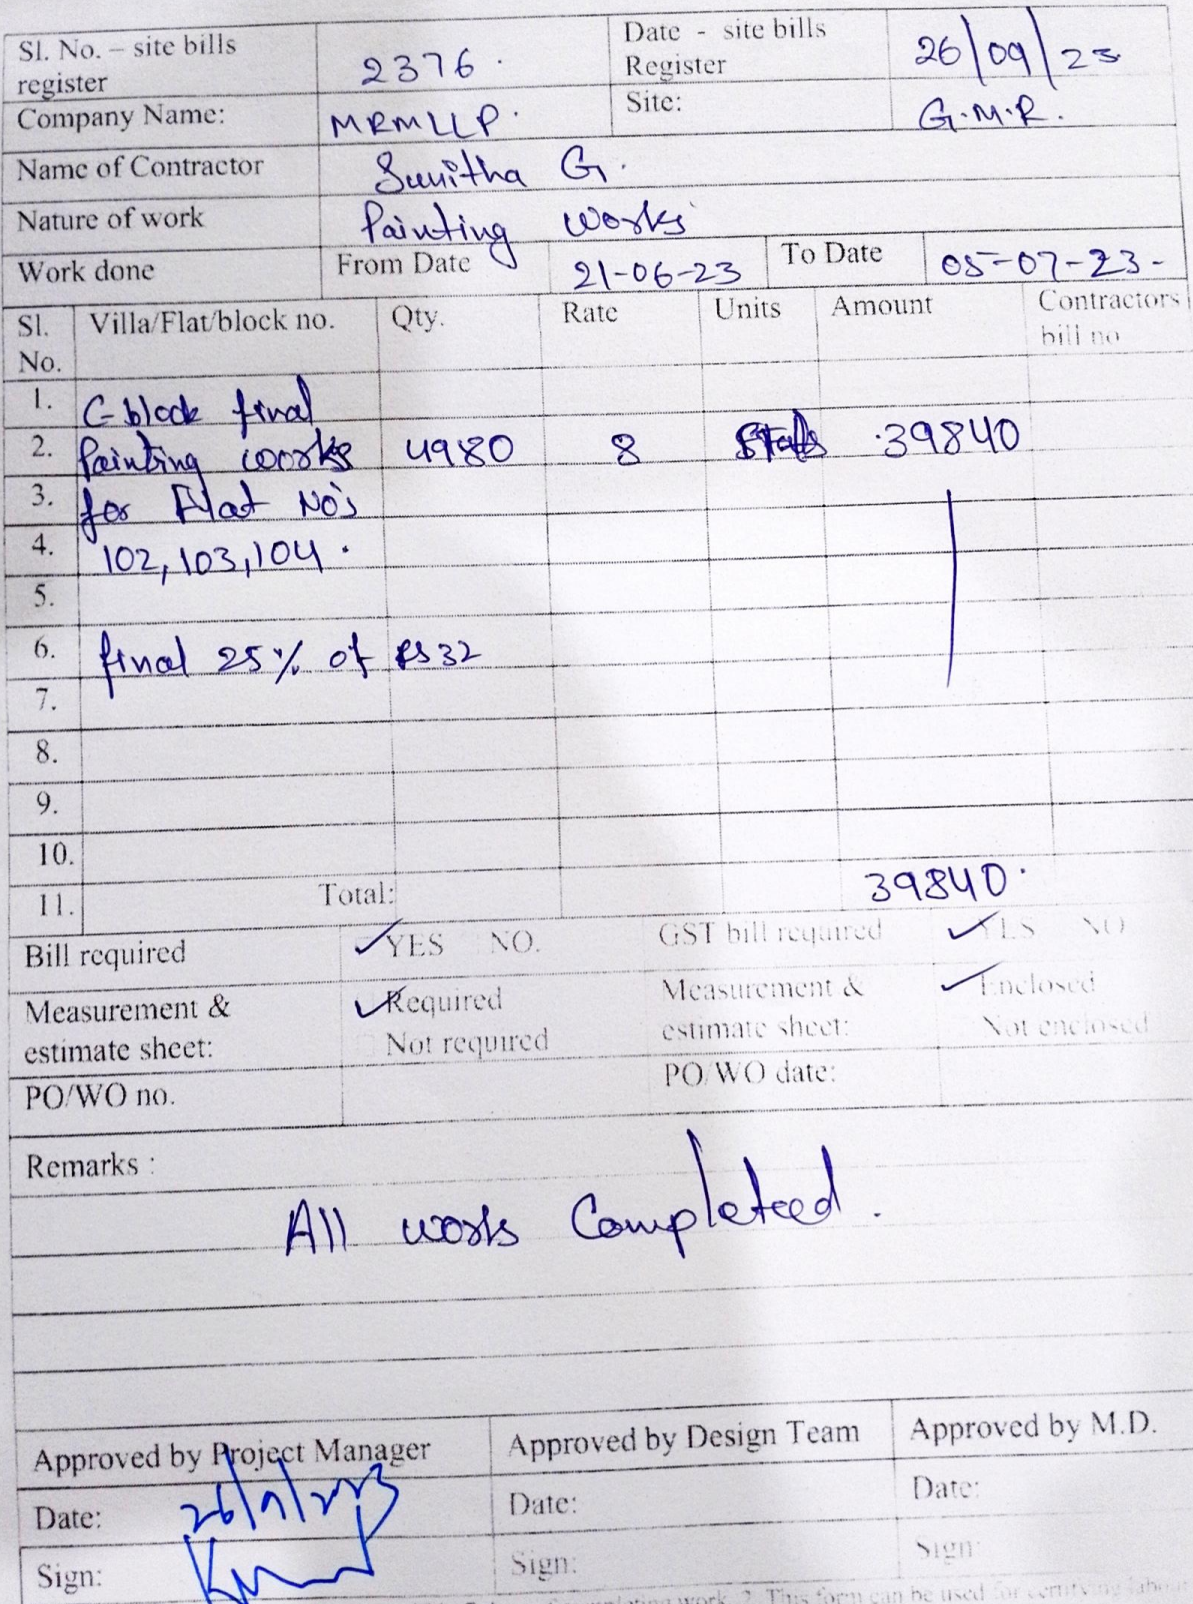 Sl. No. – site bills register 2376. Date - site bills Register 26/09/23
Company Name: MRMLLP. Site: G.M.R.
Name of Contractor Sunitha G.
Nature of work Painting works
Work done From Date 21-06-23 To Date 05-07-23-
Sl. No. Villa/Flat/block no. Qty. Rate Units Amount Contractors bill no
1. C-block final
2. Painting works 4980 8 39840
3. for Flat No's
4. 102, 103, 104.
5.
6. final 25% of RS 32
7.
8.
9.
10.
11. Total: 39840.
Bill required YES NO. GST bill required YES NO
Measurement & estimate sheet: Required Not required Measurement & estimate sheet: Enclosed Not enclosed
PO/WO no. PO/WO date:
Remarks :
All works Completeed.
Approved by Project Manager Approved by Design Team Approved by M.D.
Date: 26/9/2023 Date: Date:
Sign: Sign: Sign:
work. 2. This form can be used for certifying labour